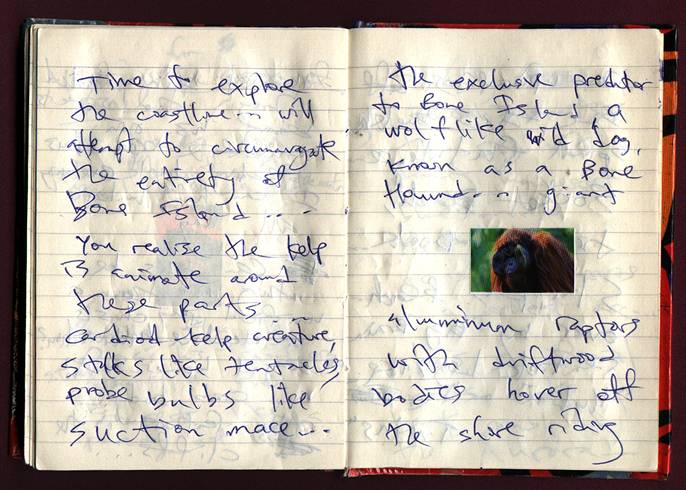 Time to explore
the coastline... will
attempt to circumnavigate
the entirety of
Bone Island...
You realise the kelp
is animate around
these parts...
cardiod kelp creature,
stalks like tentacles,
probe bulbs like
suction mace...
the exclusive predator
to Bone Island a
wolf like wild dog,
known as a Bone
Hound... giant
aluminium raptors
with driftwood
bodies hover off
the shore riding